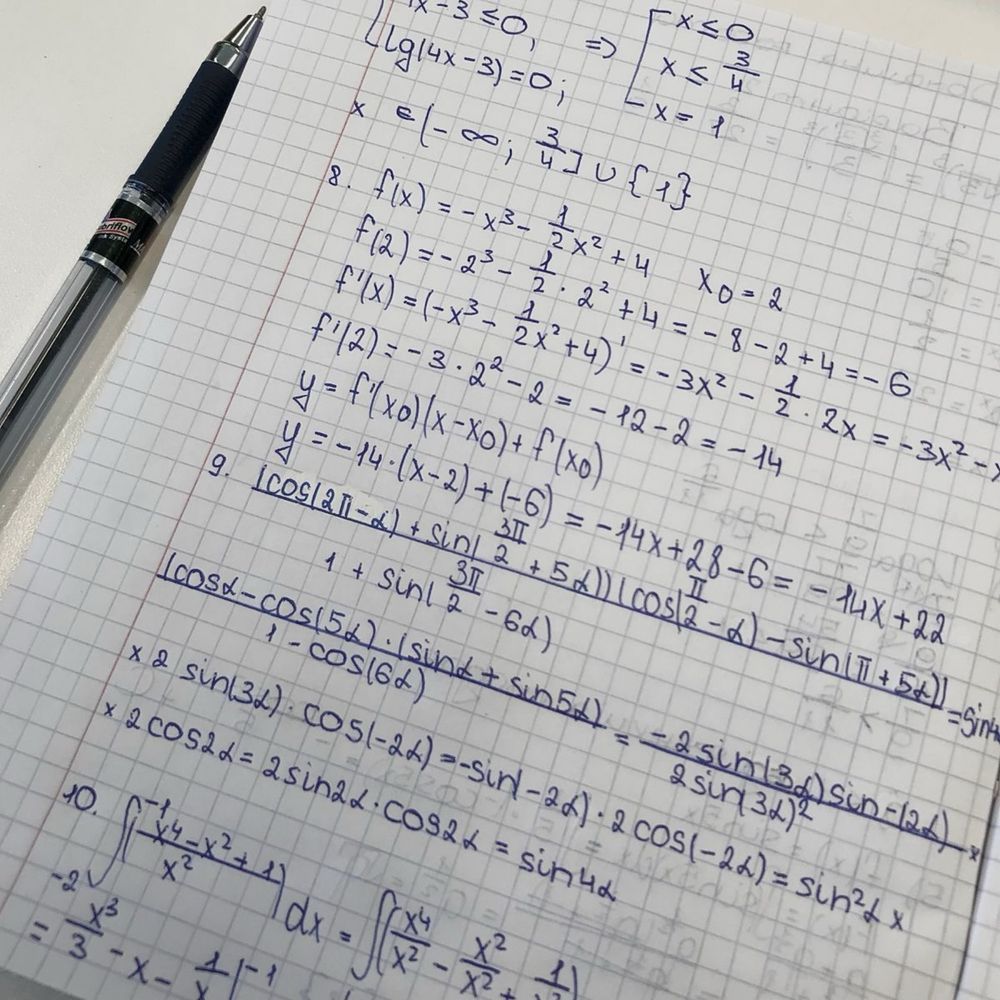 x-3≤0,
lg(4x-3)=0; => [x≤0
x≤3/4
x=1
x ∈(-∞; 3/4]∪{1}
8. f(x)=-x³-1/2x²+4 x0=2
f(2)=-2³-1/2·2²+4=-8-2+4=-6
f'(x)=(-x³-1/2x²+4)'=-3x²-1/2·2x=-3x²-x
f'(2)=-3·2²-2=-12-2=-14
y=f'(x0)(x-x0)+f(x0)
y=-14·(x-2)+(-6)=-14x+28-6=-14x+22
9. (cos(2π-α)+sin(3π/2+5α))(cos(π/2-α)-sin(π+5α))
1+sin(3π/2-6α) =sin4α
(cosα-cos(5α)·(sinα+sin5α) = -2sin(3α)sin-(2α) x
1-cos(6α) 2sin(3α)²
x 2 sin(3α)·cos(-2α)=-sin(-2α)·2cos(-2α)=sin2α x
x 2cos2α=2sin2α·cos2α=sin4α
10. -1
∫(x⁴-x²+1/x²)dx=∫(x⁴/x²-x²/x²+1/x²)
-2
=x³/3-x-1/x|-1